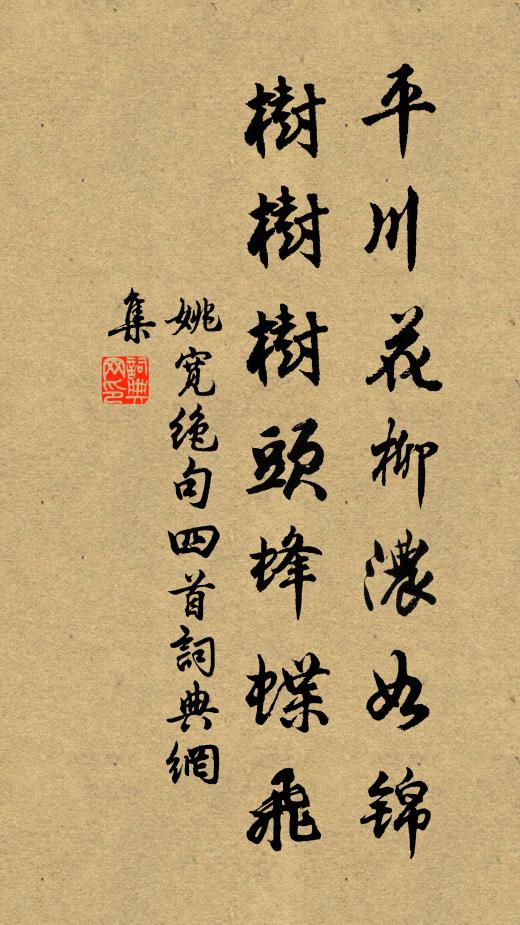 平川花柳濃如錦
樹樹樹頭蜂蝶飛
姚寬絶句四首詞典網
集
詞典
网印